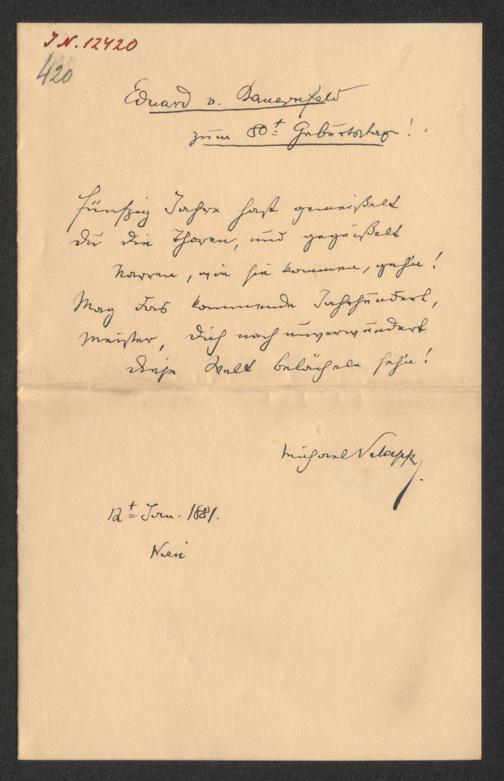 J.N. 12420
420
Eduard v. Bauernfeld
zum 80t Geburtstag!
Fünfzig Jahre hast gemeißelt
Du die Thoren, und gegeißelt
Narren, wie sie kommen, geh'n!
Mag das kommende Jahrhundert,
Meister, Dich noch unverwundert
diese Welt belächeln seh'n!
Michael
12t Jan. 1881.
Wien